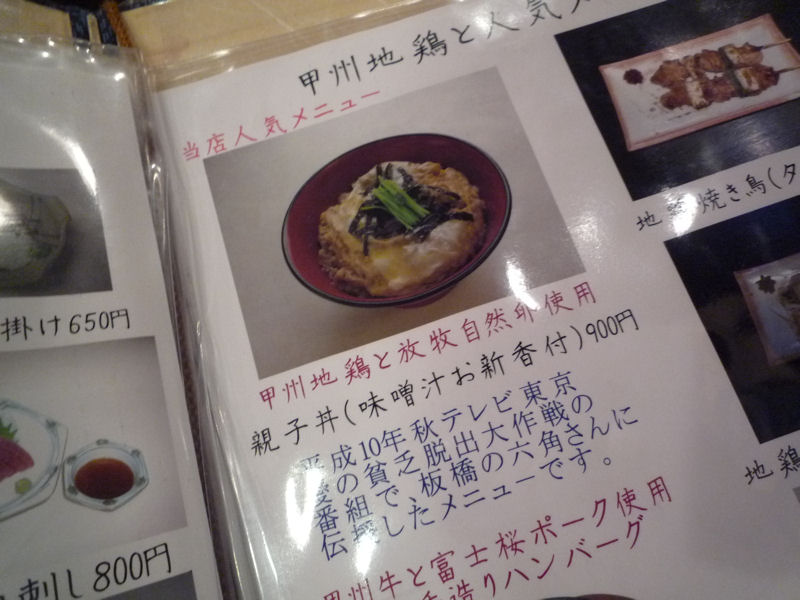 掛け 650円
刺し 800円
甲州地鶏と人気メ
当店人気メニュー
甲州地鶏と放牧自然卵使用
親子丼(味噌汁お新香付)900円
平成10年秋テレビ東京
の貧乏脱出大作戦の
番組で、板橋の六角さんに
伝授したメニューです。
甲州牛と富士桜ポーク使用
手造りハンバーグ
地鶏焼き鳥(タ
地鶏